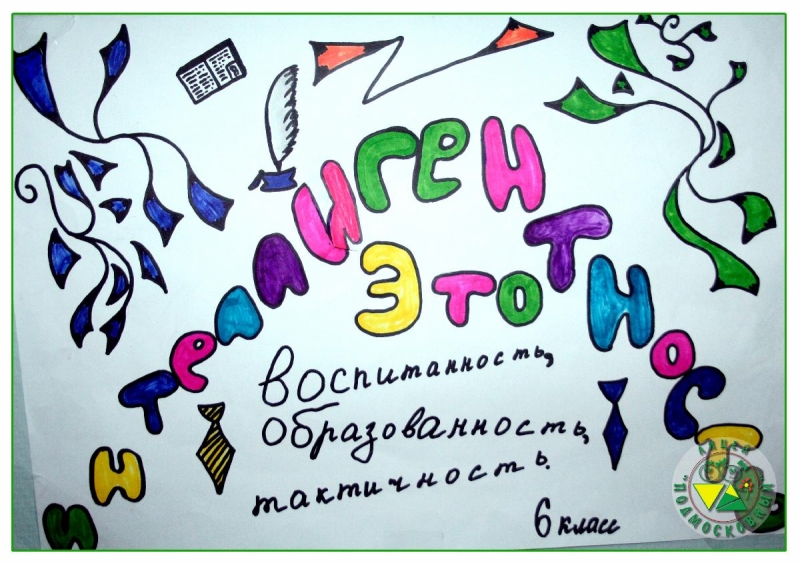 ИНТеллИГеНТНОСТЬ
ЭТО
воспитанность,
образованность,
тактичность.
6 класс
ЛИЦЕЙ
"ПОДМОСКОВНЫЙ"